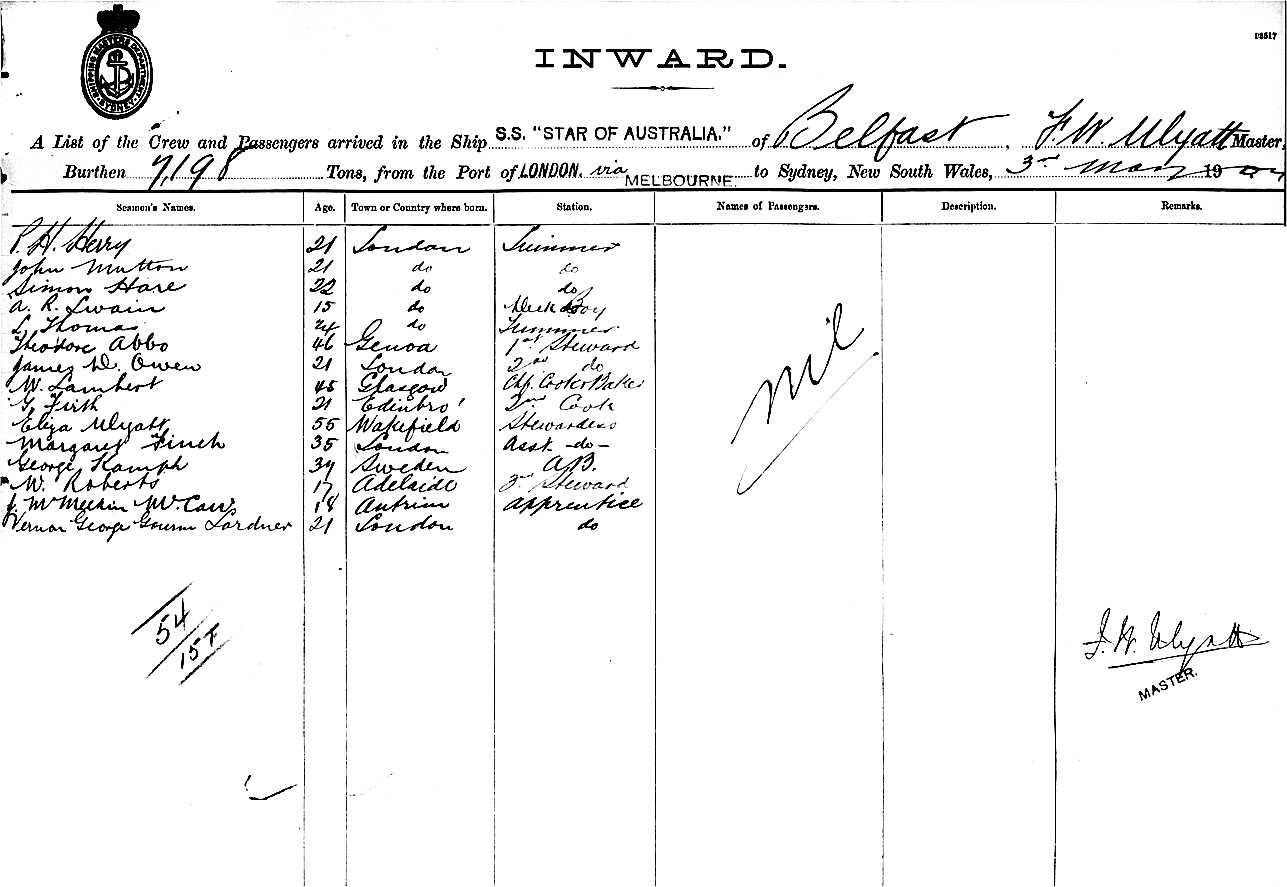 D3517
SHIPPING MASTERS DEPARTMENT SYDNEY
INWARD.
A List of the Crew and Passengers arrived in the Ship S.S. "STAR OF AUSTRALIA." of Belfast, F. W. Ulyatt Master,
Burthen 7,198 Tons, from the Port of LONDON. via MELBOURNE. to Sydney, New South Wales, 3rd May 190
Seamen's Names. Age. Town or Country where born. Station. Names of Passengers. Description. Remarks.
P. H. Herry 21 London Trimmer
John Mutton 21 do do
Simon Hare 22 do do
A. R. Swain 15 do Deck Boy
L. Thomas 24 do Trimmer
Theodore Abbo 46 Genoa 1st Steward
James D. Owen 21 London 2nd do
W. Lambert 45 Glasgow Chf. Cook & Baker
G. Firth 21 Edinbro' 2nd Cook
Eliza Ulyatt 55 Wakefield Stewardess
Margaret Finch 35 London Asst. -do-
George Kamph 39 Sweden A.B.
W. Roberts 17 Adelaide 3rd Steward
J. McMeekin 18 Antrim Apprentice
Vernon George Lardner 21 London do
nil
54
157
F. W. Ulyatt
MASTER.